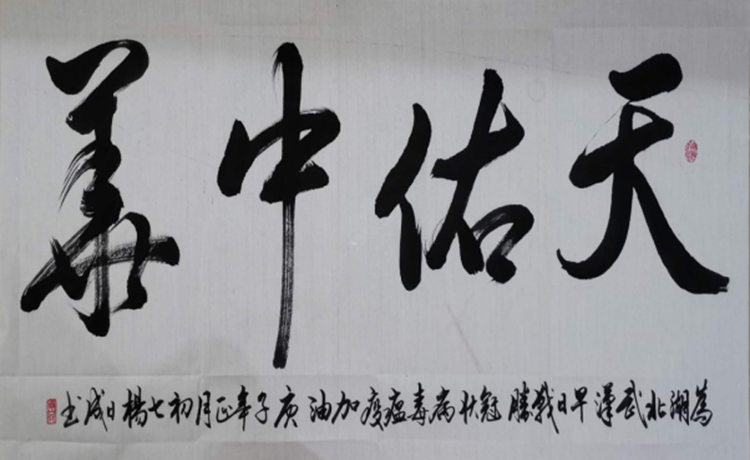 天佑中華
為湖北武漢早日戰勝冠狀病毒瘟疫加油庚子年正月初七楊日成书